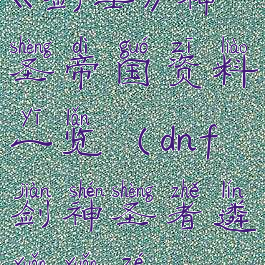 《剑士》神
shèng dì guó zī liào
圣帝国资料
yī lǎn
一览（dnf
jiàn shén shèng zhě lín
剑神圣者遴